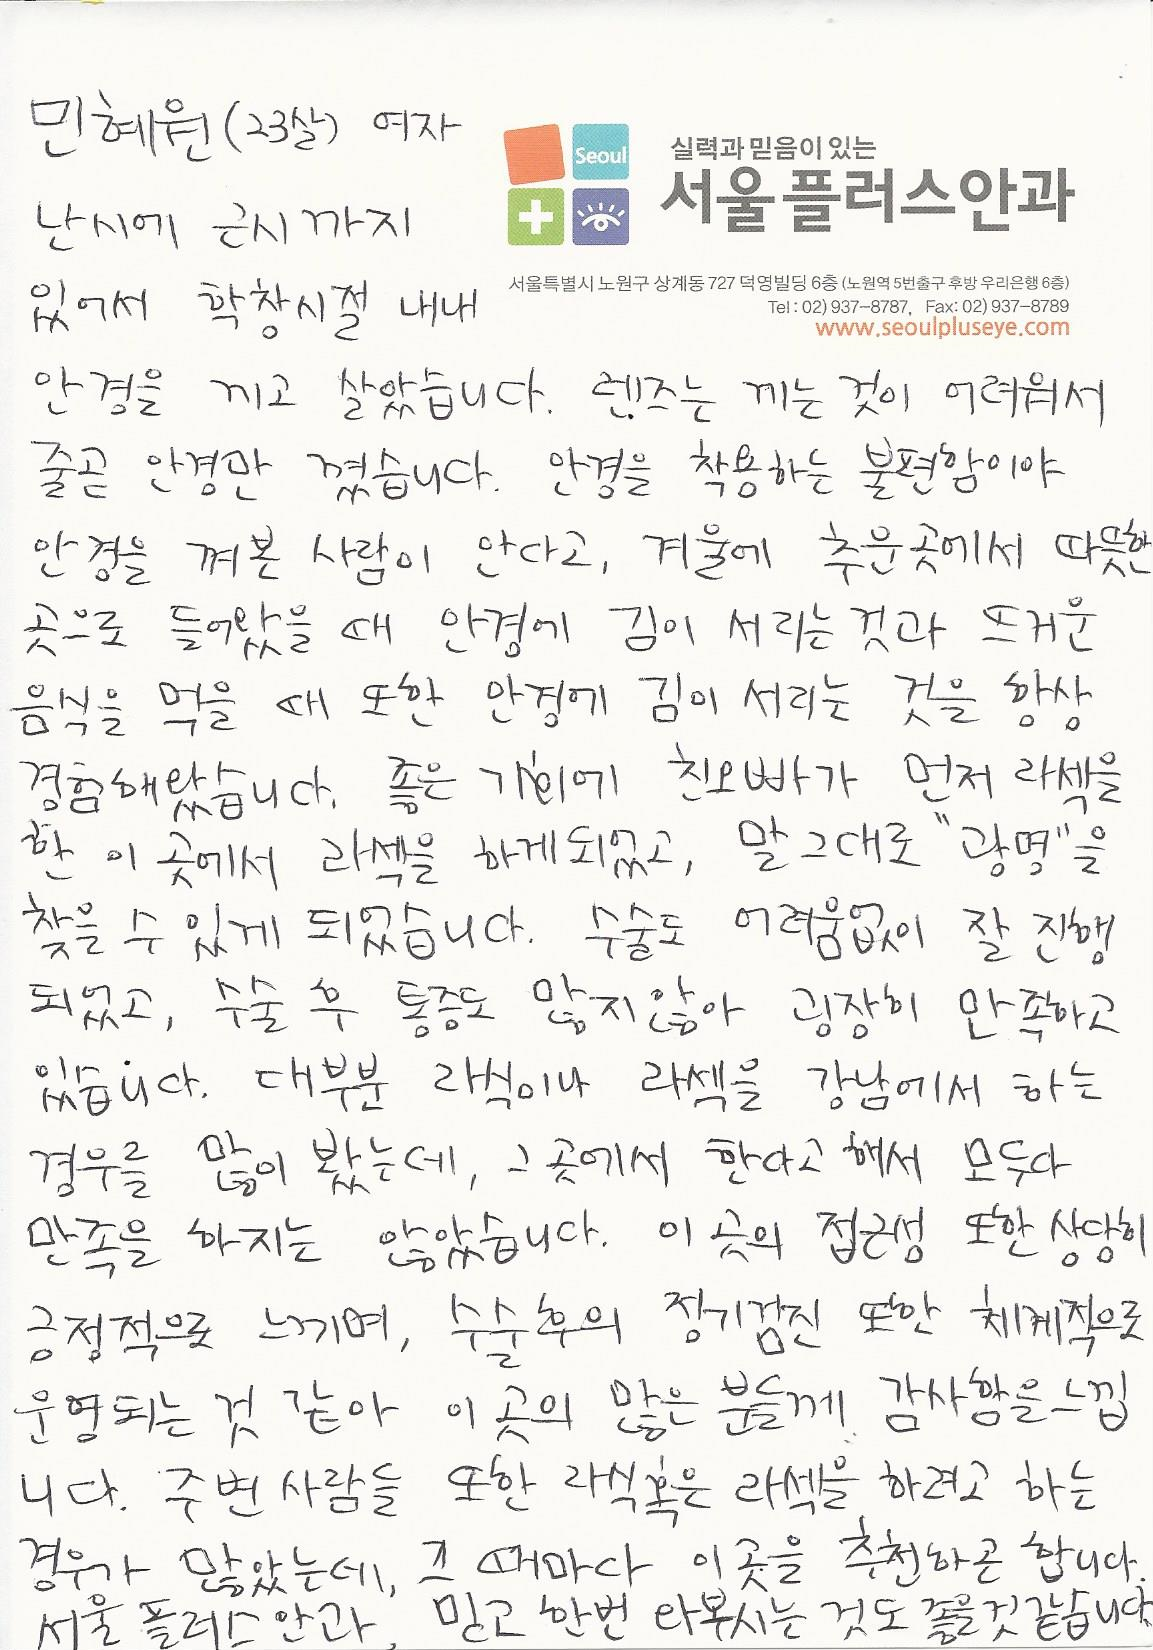 민혜원 (23살) 여자
Seoul
실력과 믿음이 있는
서울플러스안과
난시에 근시까지
서울특별시 노원구 상계동 727 덕영빌딩 6층 (노원역 5번출구 후방 우리은행 6층)
있어서 학창시절 내내
Tel : 02) 937-8787, Fax: 02) 937-8789
www.seoulpluseye.com
안경을 끼고 살았습니다. 렌즈는 끼는 것이 어려워서
줄곧 안경만 꼈습니다. 안경을 착용하는 불편함이야
안경을 껴본 사람이 안다고, 겨울에 추운곳에서 따뜻한
곳으로 들어왔을 때 안경에 김이 서리는 것과 뜨거운
음식을 먹을 때 또한 안경에 김이 서리는 것을 항상
경험해왔습니다. 좋은 기회에 친오빠가 먼저 라섹을
한 이 곳에서 라섹을 하게되었고, 말 그대로 "광명"을
찾을 수 있게 되었습니다. 수술도 어려움없이 잘 진행
되었고, 수술 후 통증도 많지않아 굉장히 만족하고
있습니다. 대부분 라식이나 라섹을 강남에서 하는
경우를 많이 봤는데, 그 곳에서 한다고 해서 모두다
만족을 하지는 않았습니다. 이 곳의 접근성 또한 상당히
긍정적으로 느끼며, 수술후의 정기검진 또한 체계적으로
운영되는 것 같아 이 곳의 많은 분들께 감사함을 느낍
니다. 주변 사람들 또한 라식 혹은 라섹을 하려고 하는
경우가 많았는데, 그 때마다 이 곳을 추천하곤 합니다.
서울 플러스 안과, 믿고 한번 와보시는 것도 좋을것같습니다.